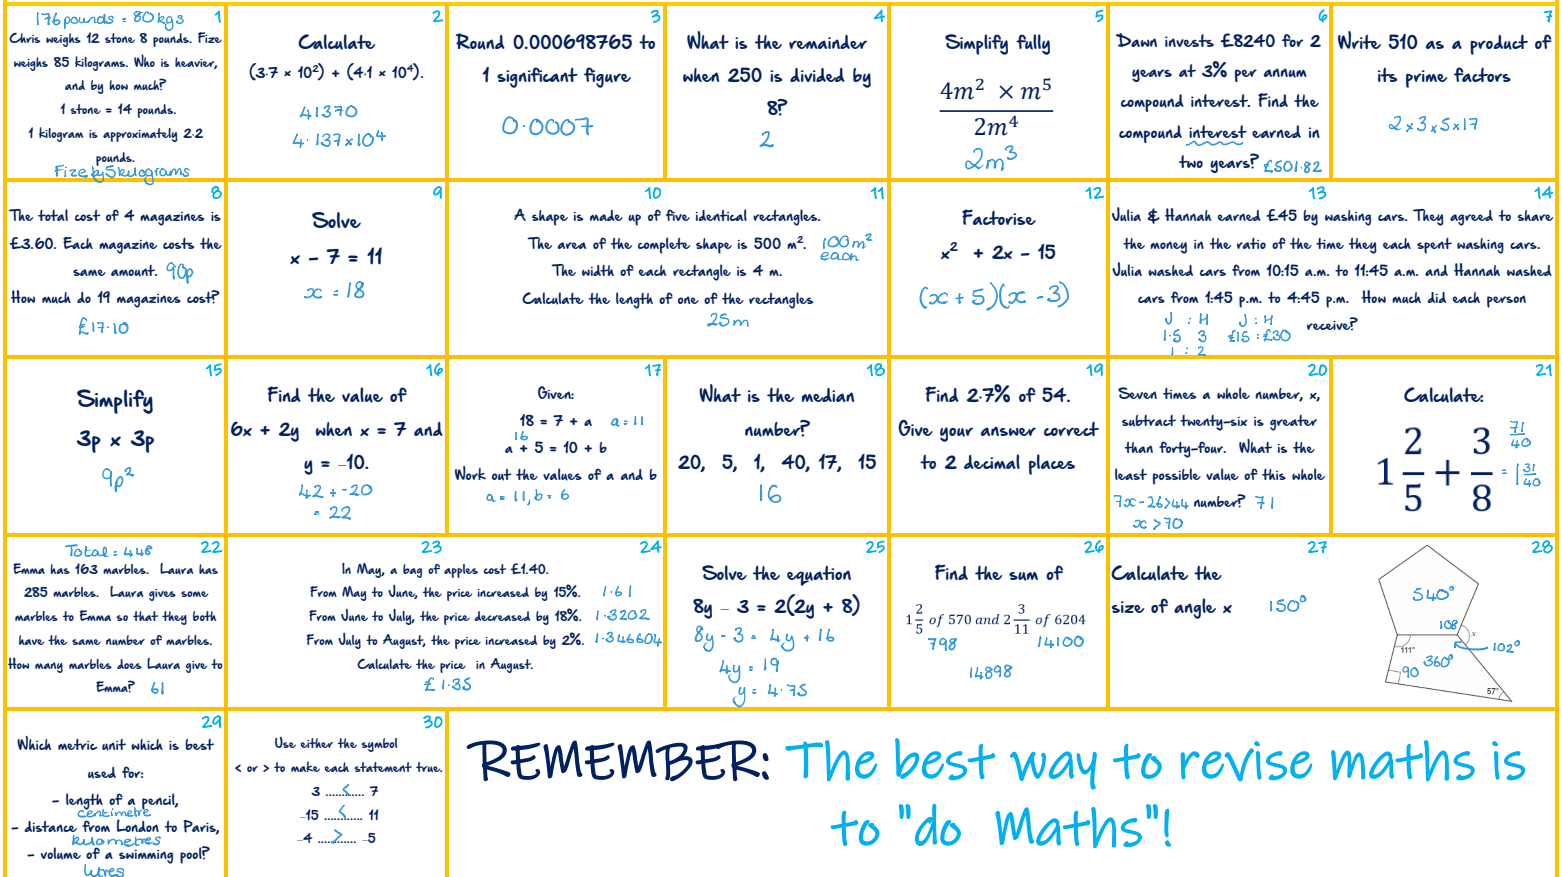 176pounds = 80kgs
1
Chris weighs 12 stone 8 pounds. Fize
weighs 85 kilograms. Who is heavier,
and by how much?
1 stone = 14 pounds.
1 kilogram is approximately 2.2
pounds.
Fize by 5 kilograms
2
Calculate
(3.7 × 10²) + (4.1 × 10⁴).
41370
4.137×10⁴
3
Round 0.000698765 to
1 significant figure
0.0007
4
What is the remainder
when 250 is divided by
8?
2
5
Simplify fully
4m² × m⁵
2m⁴
2m³
6
Dawn invests £8240 for 2
years at 3% per annum
compound interest. Find the
compound interest earned in
two years? £501.82
7
Write 510 as a product of
its prime factors
2×3×5×17
8
The total cost of 4 magazines is
£3.60. Each magazine costs the
same amount. 90p
How much do 19 magazines cost?
£17.10
9
Solve
x – 7 = 11
x = 18
10 11
A shape is made up of five identical rectangles.
The area of the complete shape is 500 m². 100m²
each
The width of each rectangle is 4 m.
Calculate the length of one of the rectangles
25m
12
Factorise
x² + 2x – 15
(x + 5)(x - 3)
13 14
Julia & Hannah earned £45 by washing cars. They agreed to share
the money in the ratio of the time they each spent washing cars.
Julia washed cars from 10:15 a.m. to 11:45 a.m. and Hannah washed
cars from 1:45 p.m. to 4:45 p.m. How much did each person
receive?
J : H J : H
1.5 3 £15 : £30
1 : 2
15
Simplify
3p x 3p
9p²
16
Find the value of
6x + 2y when x = 7 and
y = –10.
42 + -20
= 22
17
Given:
18 = 7 + a a = 11
16
a + 5 = 10 + b
Work out the values of a and b
a = 11, b = 6
18
What is the median
number?
20, 5, 1, 40, 17, 15
16
19
Find 2.7% of 54.
Give your answer correct
to 2 decimal places
20
Seven times a whole number, x,
subtract twenty-six is greater
than forty-four. What is the
least possible value of this whole
number? 71
7x-26>44
x >70
21
Calculate:
1 2/5 + 3/8
71/40
= 1 31/40
22
Total = 448
Emma has 163 marbles. Laura has
285 marbles. Laura gives some
marbles to Emma so that they both
have the same number of marbles.
How many marbles does Laura give to
Emma? 61
23 24
In May, a bag of apples cost £1.40.
From May to June, the price increased by 15%. 1.61
From June to July, the price decreased by 18%. 1.3202
From July to August, the price increased by 2%. 1.346604
Calculate the price in August.
£ 1.35
25
Solve the equation
8y – 3 = 2(2y + 8)
8y - 3 = 4y + 16
4y = 19
y = 4.75
26
Find the sum of
1 2/5 of 570 and 2 3/11 of 6204
798 14100
14898
27 28
Calculate the
size of angle x 150°
540°
108
x
111°
102°
360°
90
57°
29
Which metric unit which is best
used for:
– length of a pencil,
centimetre
– distance from London to Paris,
kilometres
– volume of a swimming pool?
litres
30
Use either the symbol
< or > to make each statement true.
3 .....<..... 7
–15 .....<..... 11
–4 .....>..... –5
REMEMBER: The best way to revise maths is
to "do Maths"!